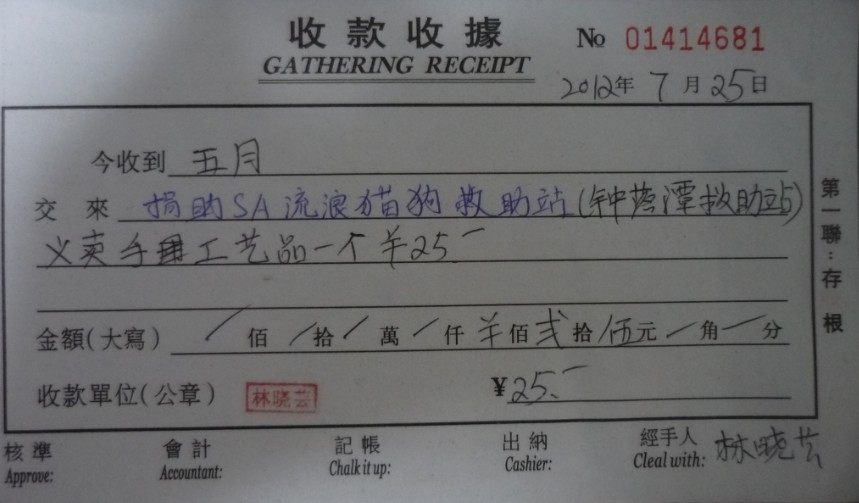 收款收據 № 01414681
GATHERING RECEIPT
2012年 7月 25日
今收到 五月
交來 捐助SA流浪猫狗救助站(钟落潭救助站)
义卖手工艺品一个 ¥25-
金額(大寫) / 佰 / 拾 / 萬 / 仟 ¥ 佰 弍 拾 伍 元 / 角 / 分
收款單位(公章) 林晓芸 ¥25.-
第一聯:存根
核準 會計 記帳 出納 經手人 林晓芸
Approve: Accountant: Chalk it up: Cashier: Cleal with: